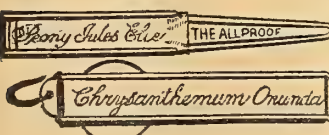 Peony Jules Elie
THE ALLPROOF
Chrysanthemum Onunda